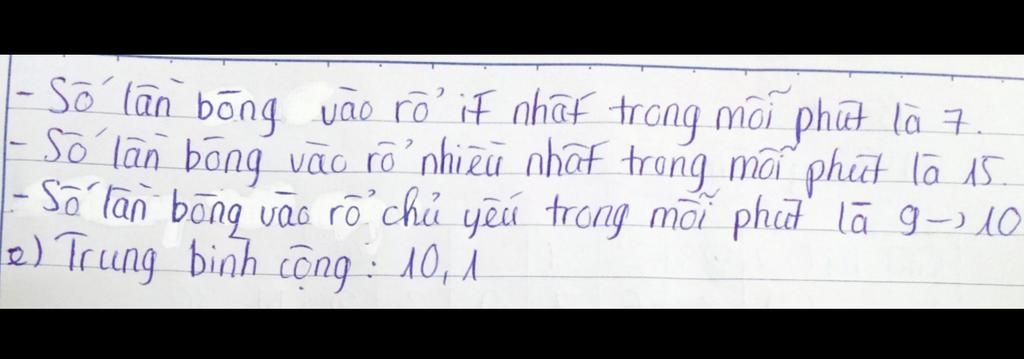 - Số lần bóng vào rổ ít nhất trong mỗi phút là 7.
- Số lần bóng vào rổ nhiều nhất trong mỗi phút là 15.
- Số lần bóng vào rổ chủ yếu trong mỗi phút là 9 → 10
e) Trung bình cộng : 10,1